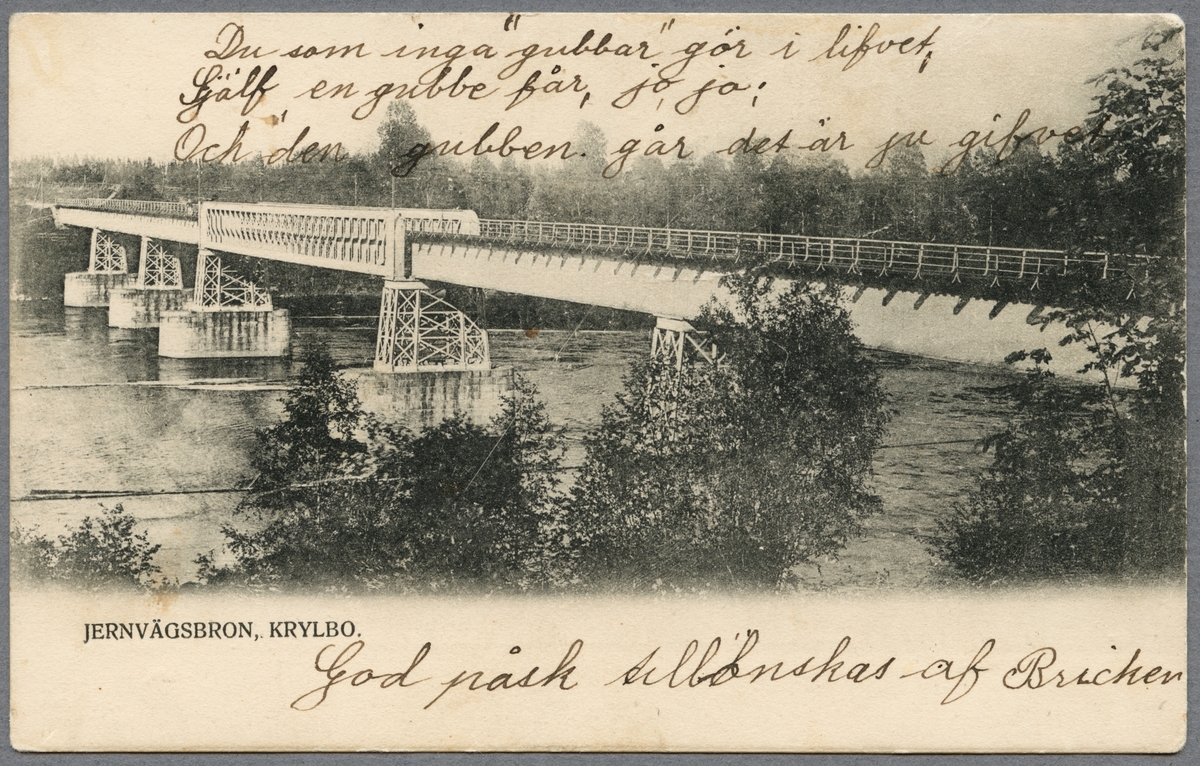 Du som inga "gubbar" gör i lifvet,
Själf en gubbe får, jo jo;
Och den gubben går det är ju gifvet
JERNVÄGSBRON, KRYLBO.
God påsk tillönskas af Bricken